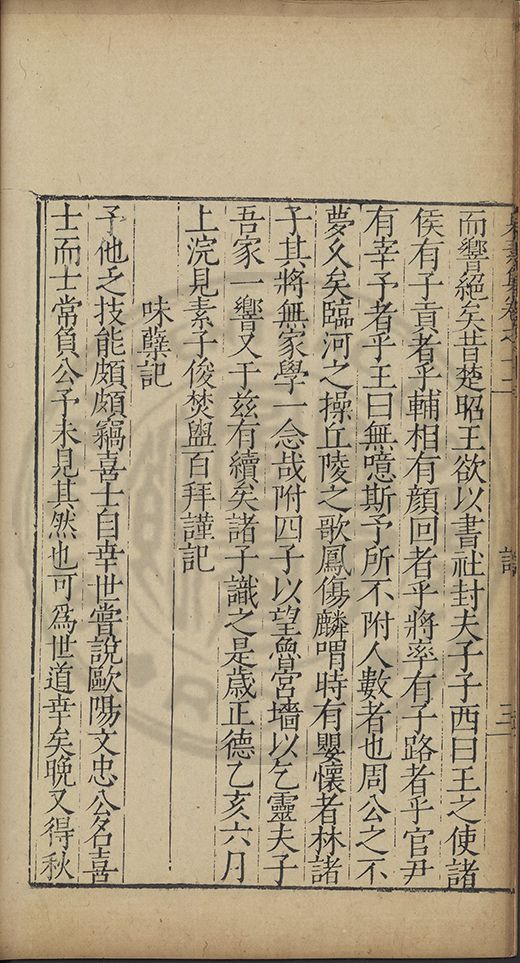 而響絕矣昔楚昭王欲以書社封夫子子西曰王之使諸
侯有子貢者乎輔相有顏回者乎將率有子路者乎官尹
有宰予者乎王曰無噫斯予所不附人數者也周公之不
夢久矣臨河之操丘陵之歌鳳傷麟喟時有嬰懷者林諸
子其將無家學一念哉附四子以望魯宮墻以乞靈夫子
吾家一響又于兹有續矣諸子識之是歲正德乙亥六月
上浣見素子俊焚盥百拜謹記
味蘗記
予他乏技能頗頗竊喜士自幸世嘗說歐陽文忠公名喜
士而士常負公予未見其然也可爲世道幸矣晚又得秋